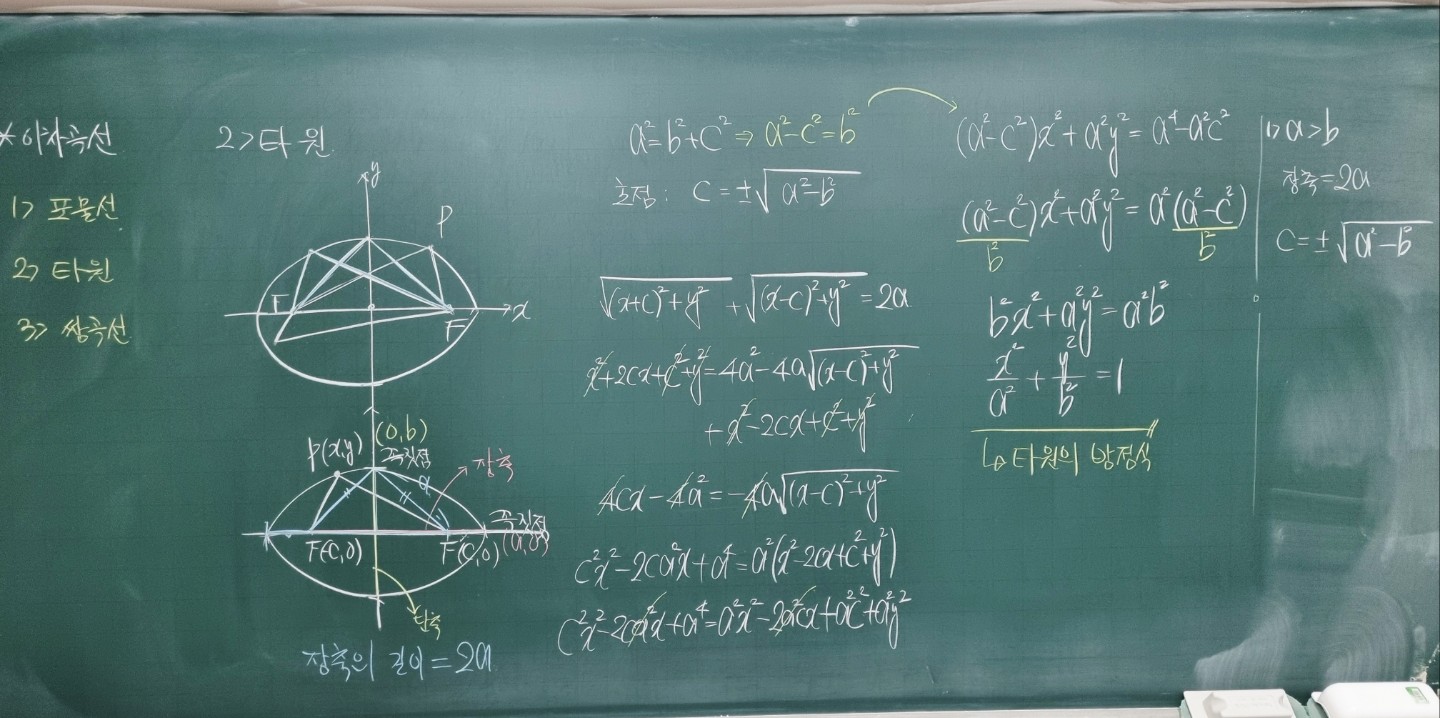 *이차곡선
1> 포물선
2> 타원
3> 쌍곡선
2>타원
y
P
F
F
x
P(x,y)
(0,b)
꼭짓점
장축
a
꼭짓점
(a,0)
F(C,0)
F(C,0)
단축
장축의 길이=2a
a²=b²+c² ⇒ a²-c²=b²
초점: C=±√(a²-b²)
√((x+c)²+y²) + √((x-c)²+y²) = 2a
x²+2cx+c²+y²=4a²-4a√((x-c)²+y²)
+x²-2cx+c²+y²
4cx-4a²=-4a√((x-c)²+y²)
c²x²-2ca²x+a⁴=a²(x²-2cx+c²+y²)
c²x²-2ca²x+a⁴=a²x²-2a²cx+a²c²+a²y²
(a²-c²)x²+a²y²=a⁴-a²c²
(a²-c²)x²+a²y²=a²(a²-c²)
b² b²
b²x²+a²y²=a²b²
x²/a²+y²/b²=1
↳ 타원의 방정식
1> a>b
장축=2a
C=±√(a²-b²)